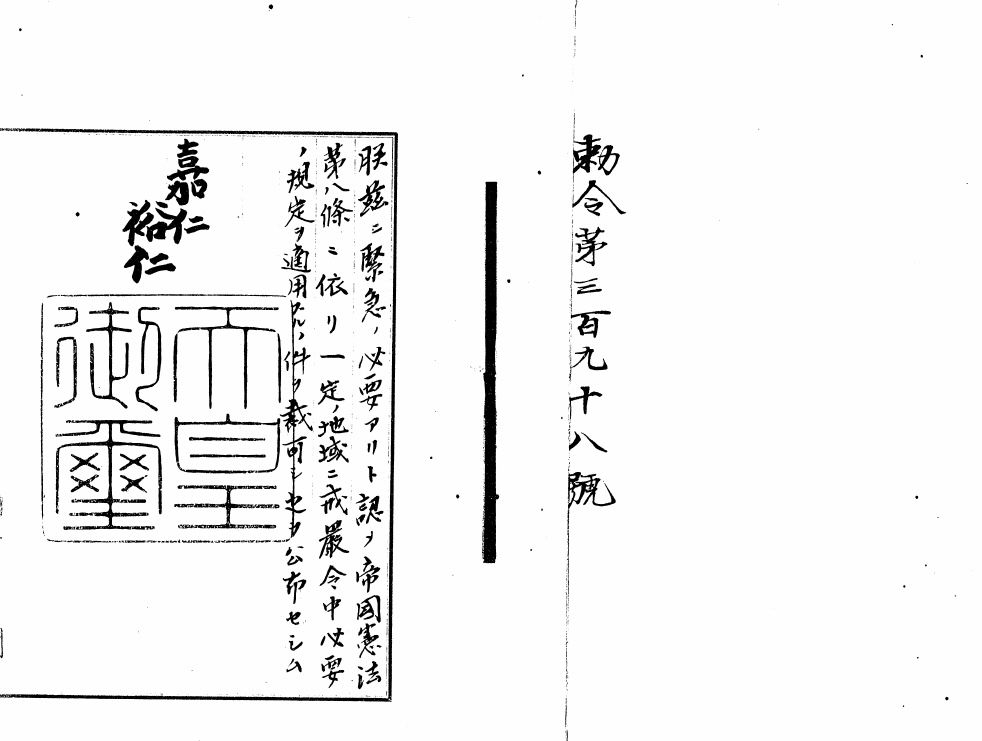 勅令第三百九十八號
朕茲ニ緊急ノ必要アリト認メ帝國憲法
第八條ニ依リ一定ノ地域ニ戒嚴令中必要
ノ規定ヲ適用スルノ件ヲ裁可シ之ヲ公布セシム
嘉仁
裕仁
天皇
御璽